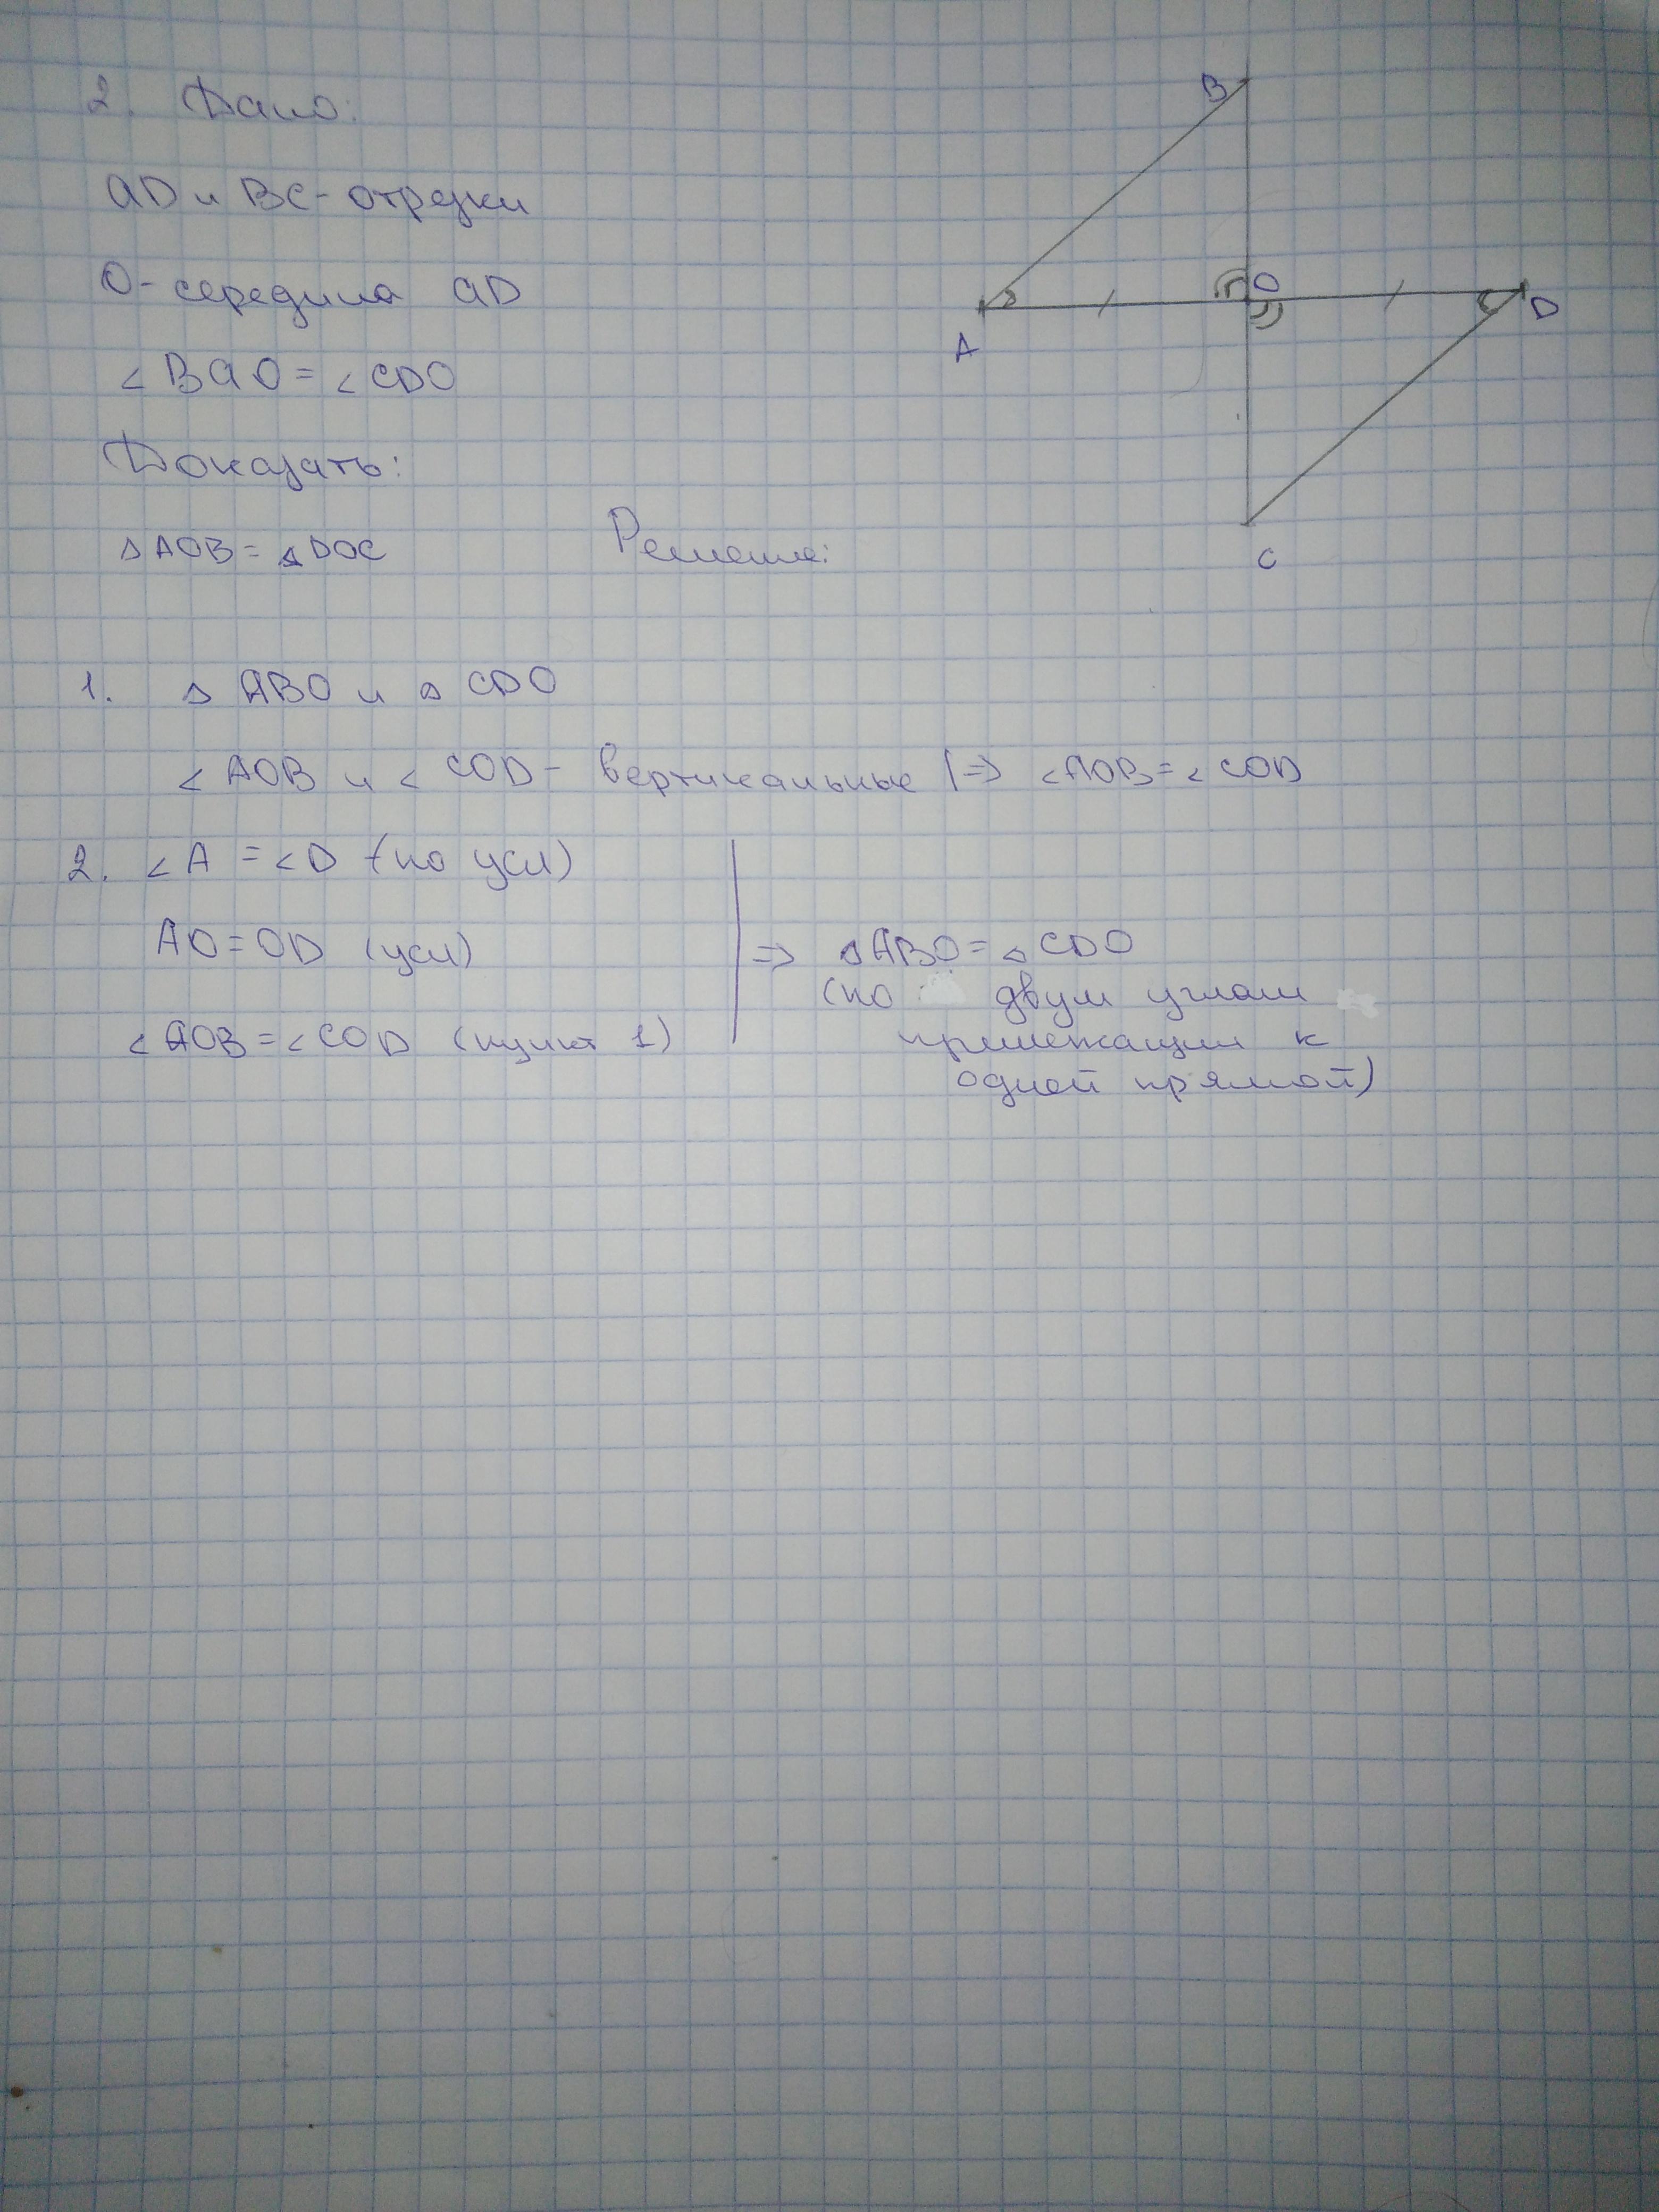 2. Дано:
AD и BC - отрезки
O - середина AD
∠BAO = ∠CDO
Доказать:
△AOB = △DOC
Решение:
B
O
A
D
C
1. △ ABO и △ CDO
∠AOB и ∠COD - вертикальные | => ∠AOB = ∠COD
2. ∠A = ∠D (по усл)
AO = OD (усл)
∠AOB = ∠COD (пункт 1)
=> △ABO = △CDO
(по двум углам
прилежащим к
одной прямой)